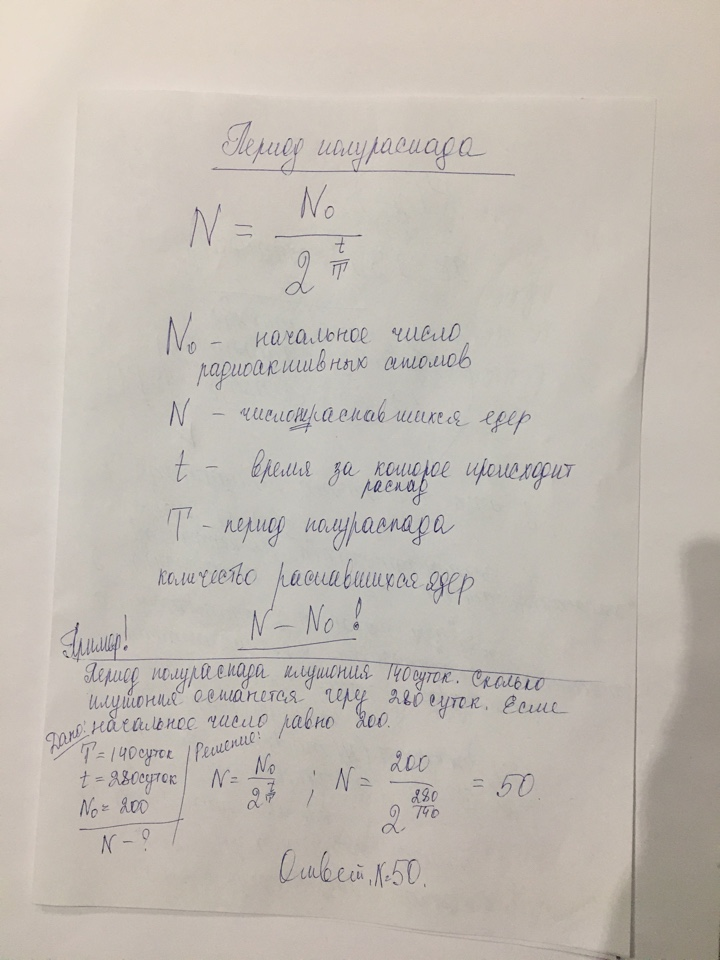 Период полураспада
N = N₀ / 2^(t/T)
N₀ - начальное число
радиоактивных атомов
N - число нераспавшихся ядер
t - время за которое происходит
распад
T - период полураспада
количество распавшихся ядер
N - N₀ !
Пример!
Период полураспада плутония 140 суток. Сколько
плутония останется через 280 суток. Если
начальное число равно 200.
Дано:
T = 140 суток
t = 280 суток
N₀ = 200
N - ?
Решение:
N = N₀ / 2^(t/T) ; N = 200 / 2^(280/140) = 50.
Ответ, N=50.